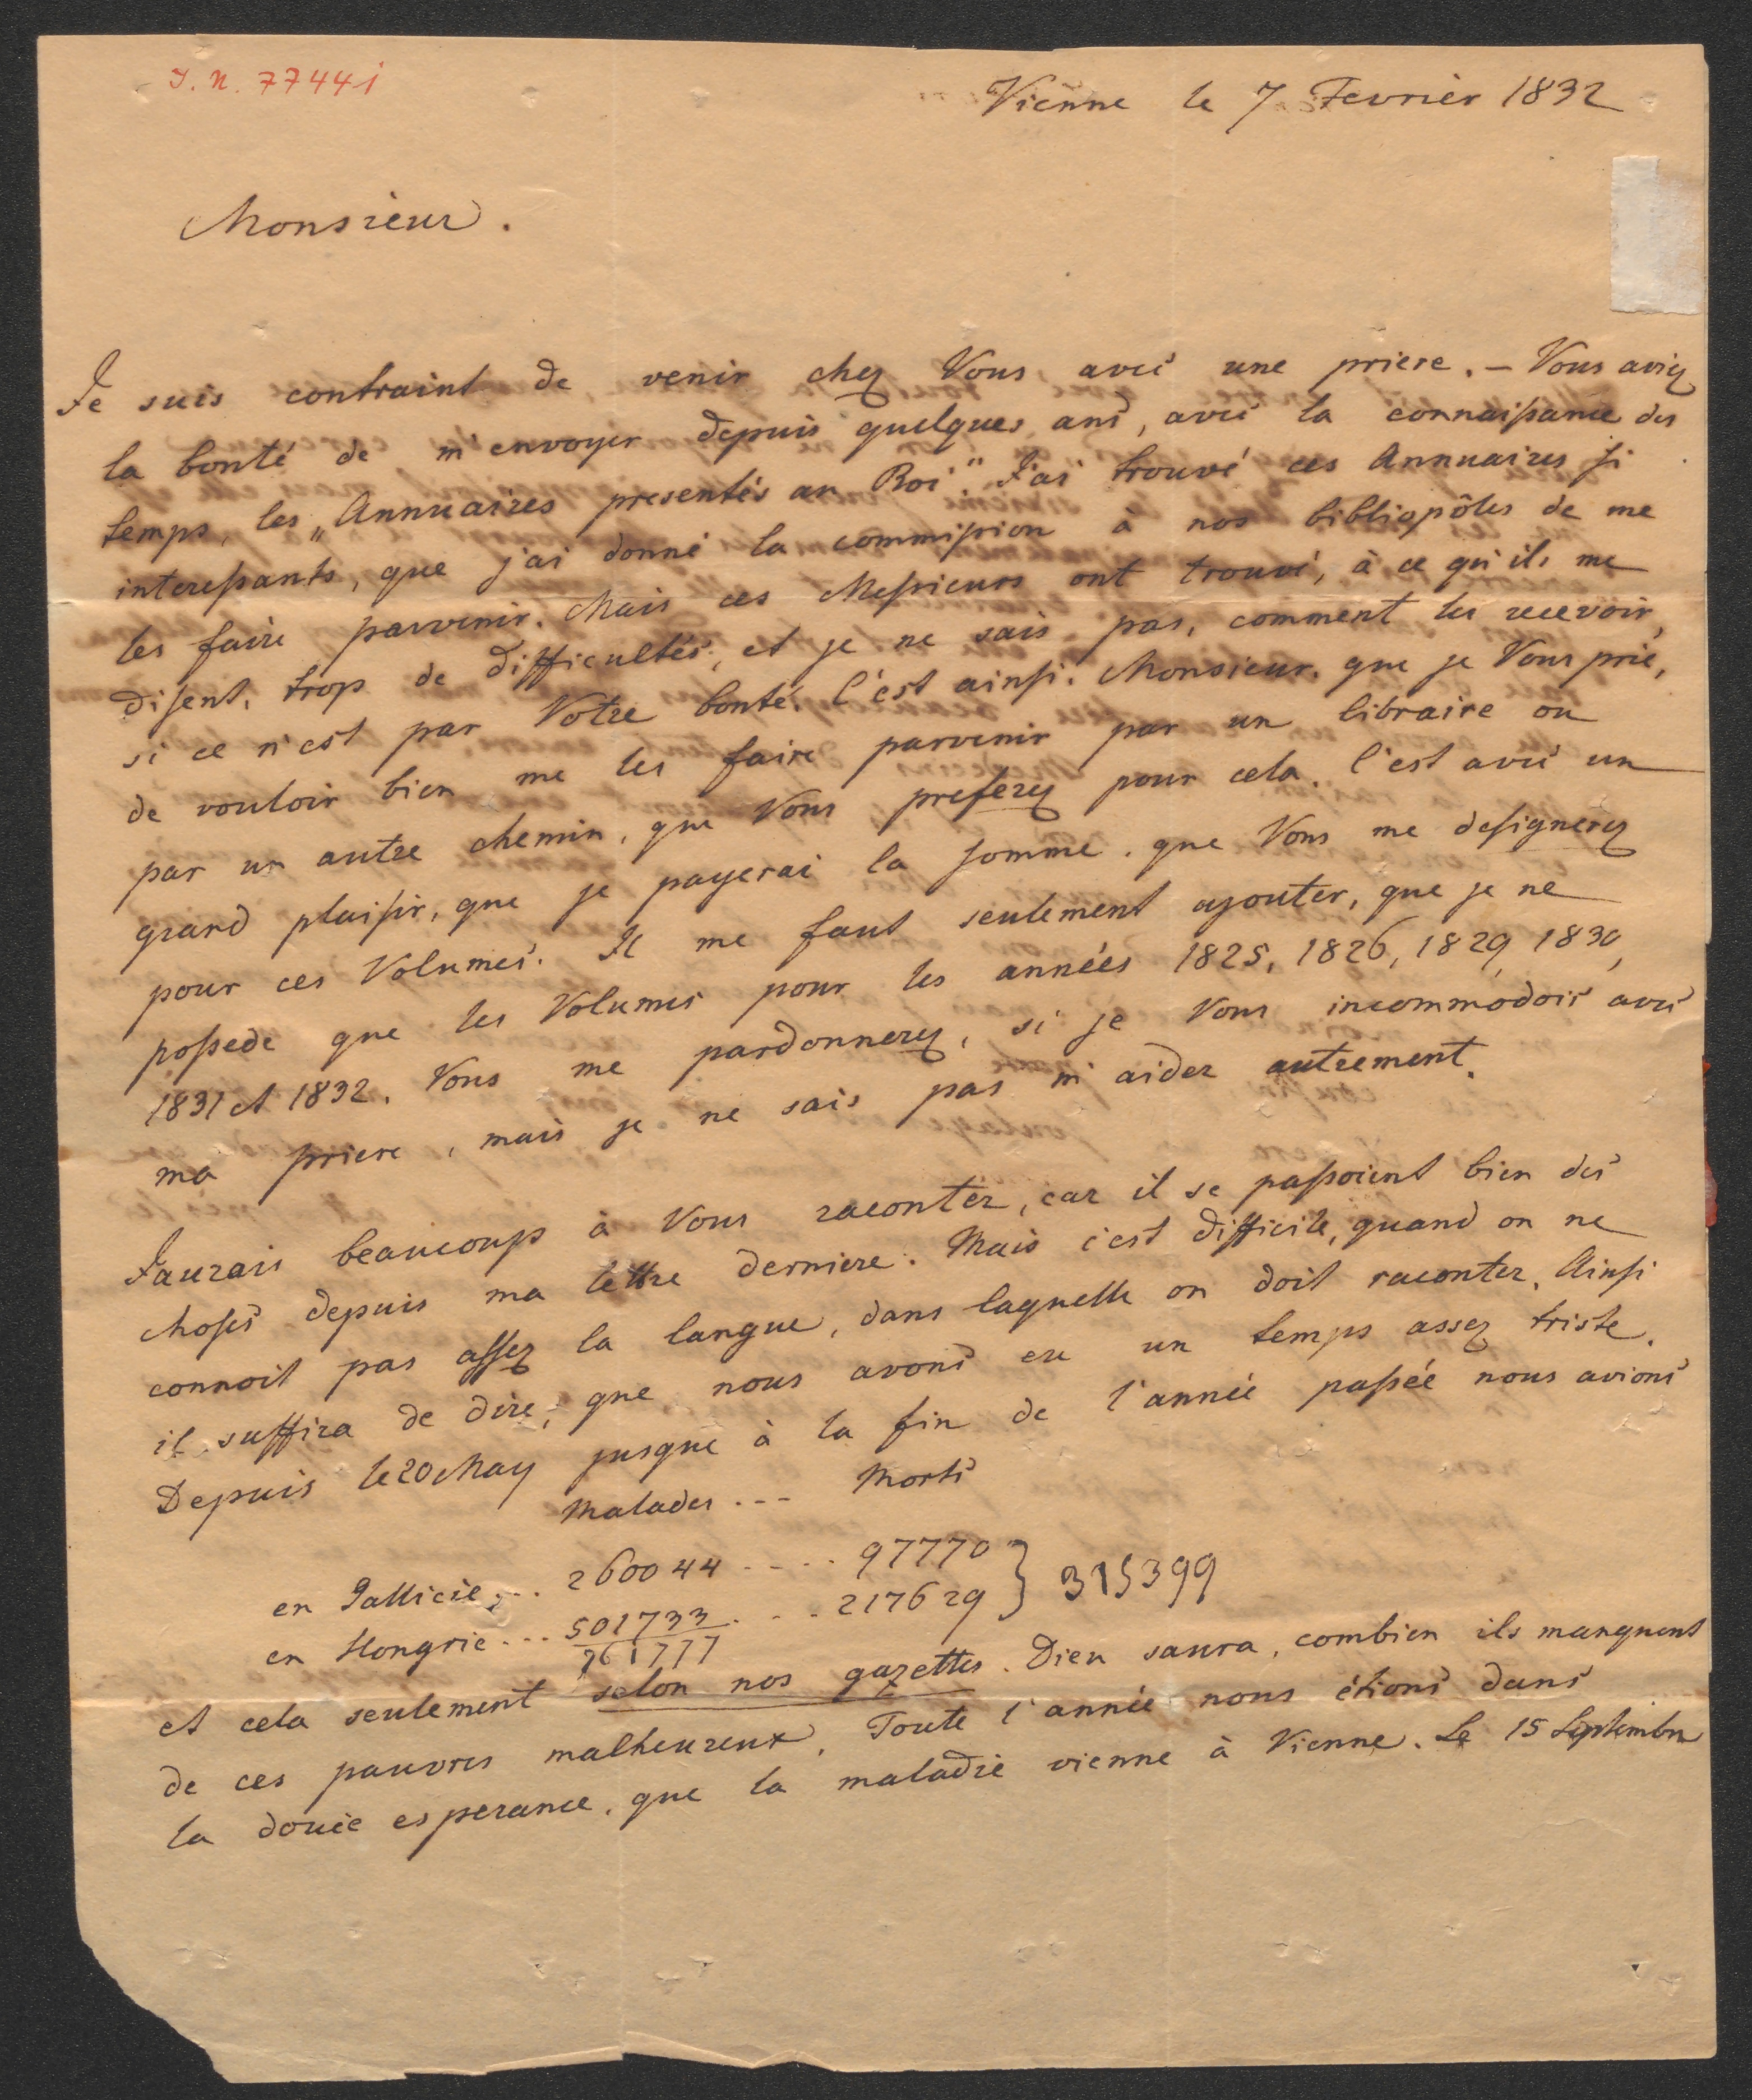 I. N. 77441
Vienne le 7 Fevrièr 1832
Monsieur.
Je suis contraint de venir chez Vous avec une priere. – Vous aviez
la bonté de m'envoyer depuis quelques ans, avec la connaißance des
temps, les „Annuaires presentés au Roi". J'ai trouvé ces Annuaires si
intereßants, que j'ai donné la commißion à nos bibliopôles de me
les faire parvenir. Mais ces Meßieurs ont trouvé, à ce qu'ils me
disent, trop de difficultés, et je ne sais pas, comment les recevoir,
si ce n'est par Votre bonté. C'est ainsi. Monsieur, que je Vous prie,
de vouloir bien me les faire parvenir par un libraire ou
par un autre chemin, que Vous preferez pour cela. C'est avec un
grand plaisir, que je payerai la somme, que Vous me designerez
pour ces Volumes. Il me faut seulement ajouter, que je ne
poßede que les Volumes pour les années 1825, 1826, 1829, 1830,
1831 et 1832. Vous me pardonnerez, si je Vous incommodois avec
ma priere, mais je ne sais pas m'aider autrement.
J'aurais beaucoup à Vous raconter, car il se paßoient bien des
choses depuis ma lettre derniere. Mais c'est difficile, quand on ne
connoit pas assez la langue, dans laquelle on doit raconter. Ainsi
il suffira de dire, que nous avons eu un temps assez triste.
Depuis le 20 May jusque à la fin de l'année paßée nous avions
Malades --- Morts
en Gallicie --- 260044 ---- 97770 } 315399
en Hongrie --- 501733 --- 217629
761777
et cela seulement selon nos gazettes. Dieu saura, combien ils manquent
de ces pauvres malheureux. Toute l'année nous étions dans
la douce esperance, que la maladie vienne à Vienne. Le 15 Septembre